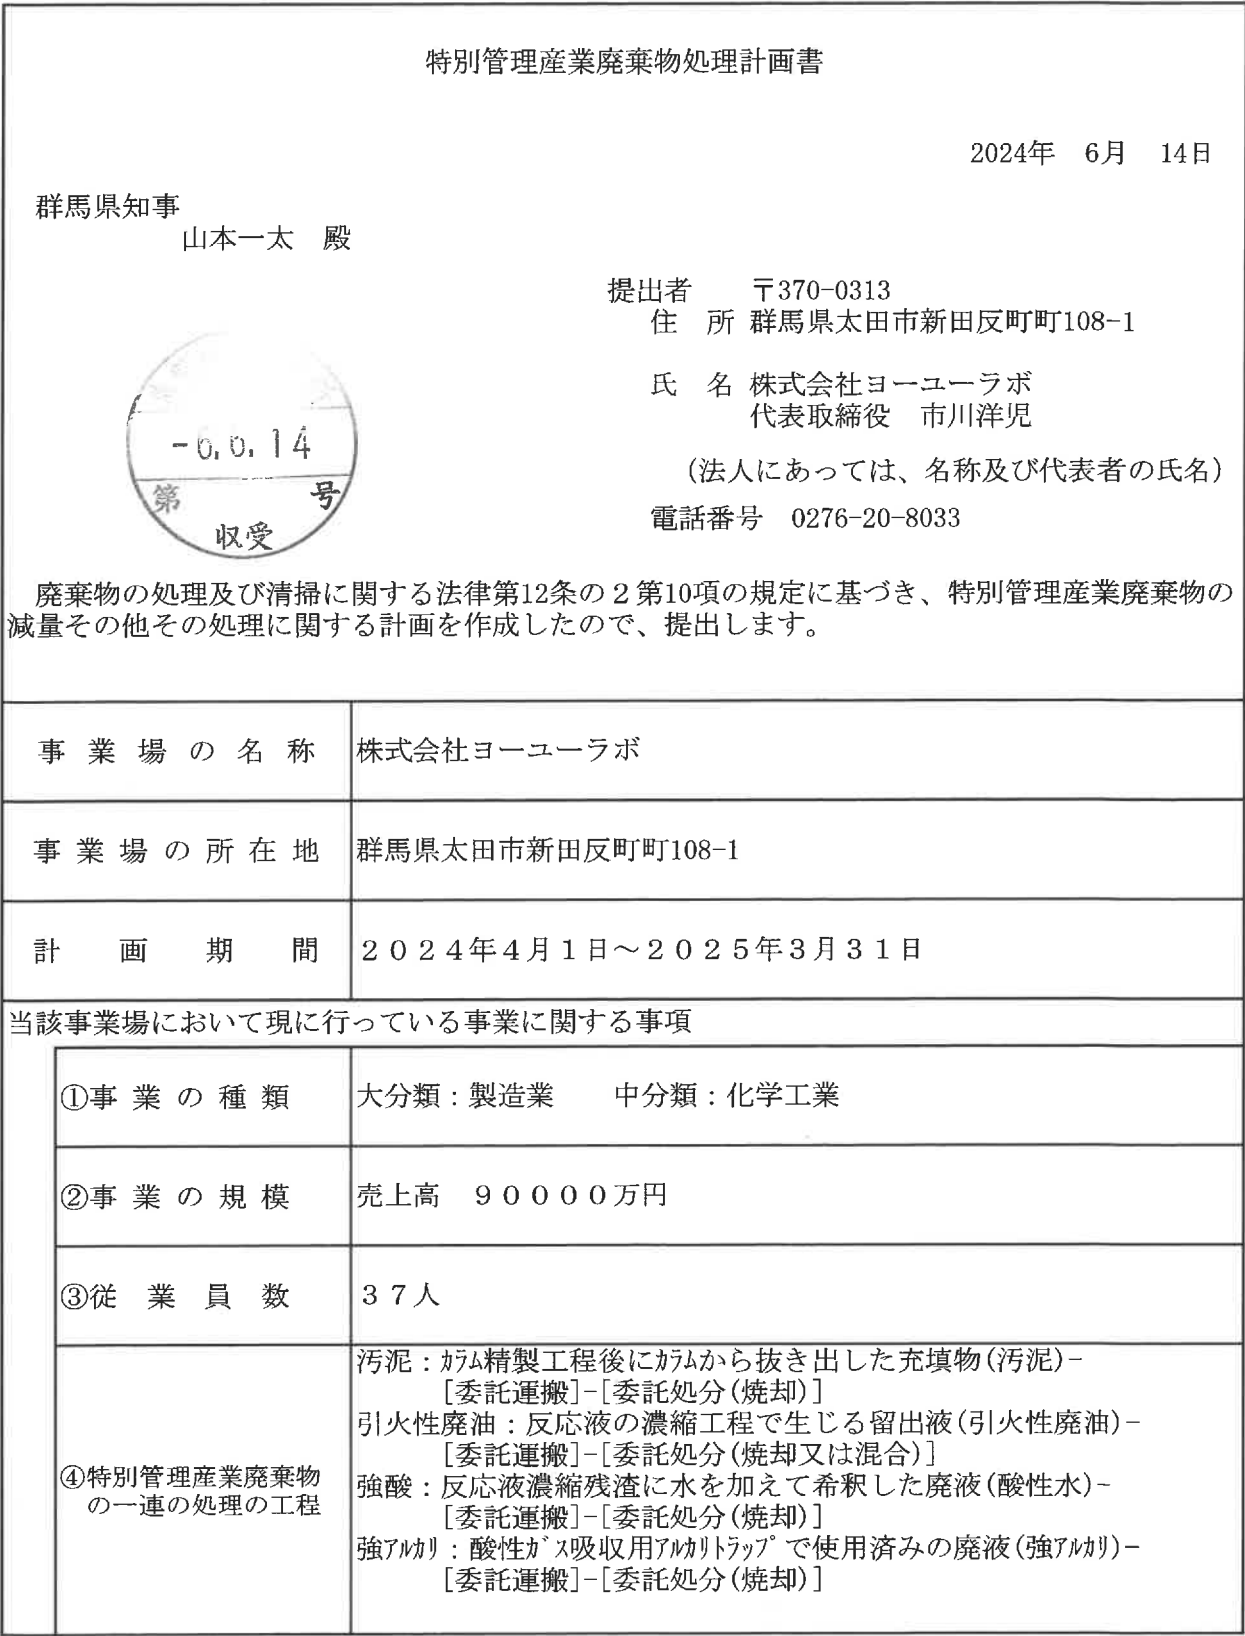 特別管理産業廃棄物処理計画書
2024年　6月　14日
群馬県知事
山本一太　殿
提出者　〒370-0313
住　所 群馬県太田市新田反町町108-1
氏　名 株式会社ヨーユーラボ
代表取締役　市川洋児
(法人にあっては、名称及び代表者の氏名)
電話番号　0276-20-8033
-6.6.14
第　号
収受
廃棄物の処理及び清掃に関する法律第12条の２第10項の規定に基づき、特別管理産業廃棄物の
減量その他その処理に関する計画を作成したので、提出します。
事業場の名称　株式会社ヨーユーラボ
事業場の所在地　群馬県太田市新田反町町108-1
計画期間　２０２４年４月１日～２０２５年３月３１日
当該事業場において現に行っている事業に関する事項
①事業の種類　大分類：製造業　中分類：化学工業
②事業の規模　売上高　９００００万円
③従業員数　３７人
④特別管理産業廃棄物
の一連の処理の工程
汚泥：ｶﾗﾑ精製工程後にｶﾗﾑから抜き出した充填物(汚泥)-
[委託運搬]-[委託処分(焼却)]
引火性廃油：反応液の濃縮工程で生じる留出液(引火性廃油)-
[委託運搬]-[委託処分(焼却又は混合)]
強酸：反応液濃縮残渣に水を加えて希釈した廃液(酸性水)-
[委託運搬]-[委託処分(焼却)]
強ｱﾙｶﾘ：酸性ｶﾞｽ吸収用ｱﾙｶﾘﾄﾗｯﾌﾟで使用済みの廃液(強ｱﾙｶﾘ)-
[委託運搬]-[委託処分(焼却)]